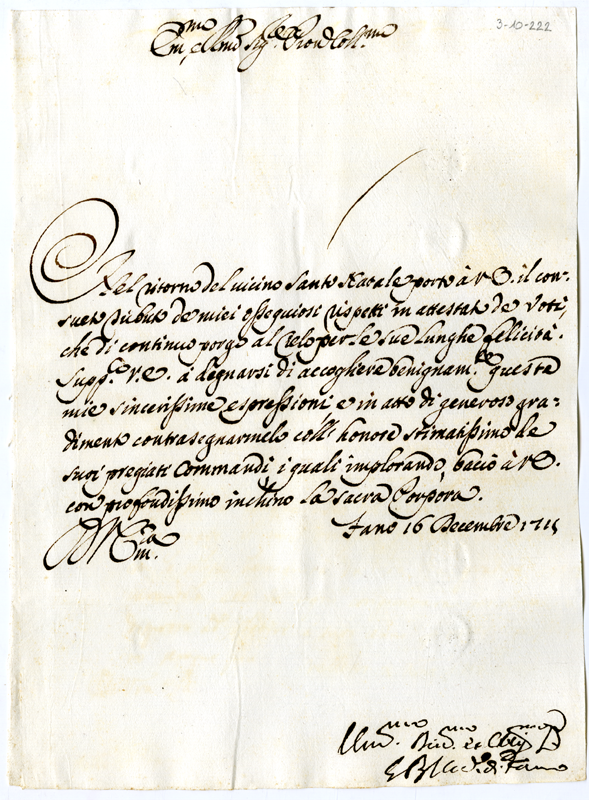 3-10-222
Em.mo e Rmo Sig.re Pron Coll.mo
Nel ritorno del vicino Santo Natale porto à V.E. il con-
sueto tributo de miei ossequiosi rispetti in attestato de Voti,
che di continuo porgo al Cielo per le sue lunghe felicità.
Supp.co V.E. à degnarsi di accogliere benignam.te queste
mie sincerissime espressioni e in atto di generoso gra-
dimento contrasegnarmelo coll' honore stimatissimo de
suoi pregiati Commandi, i quali implorando, bacio à V.E.
con profondissimo inchino la Sacra Porpora.
Fano 16 Decembre 1715
Um.mo Div.mo et Obl.mo
di Fano